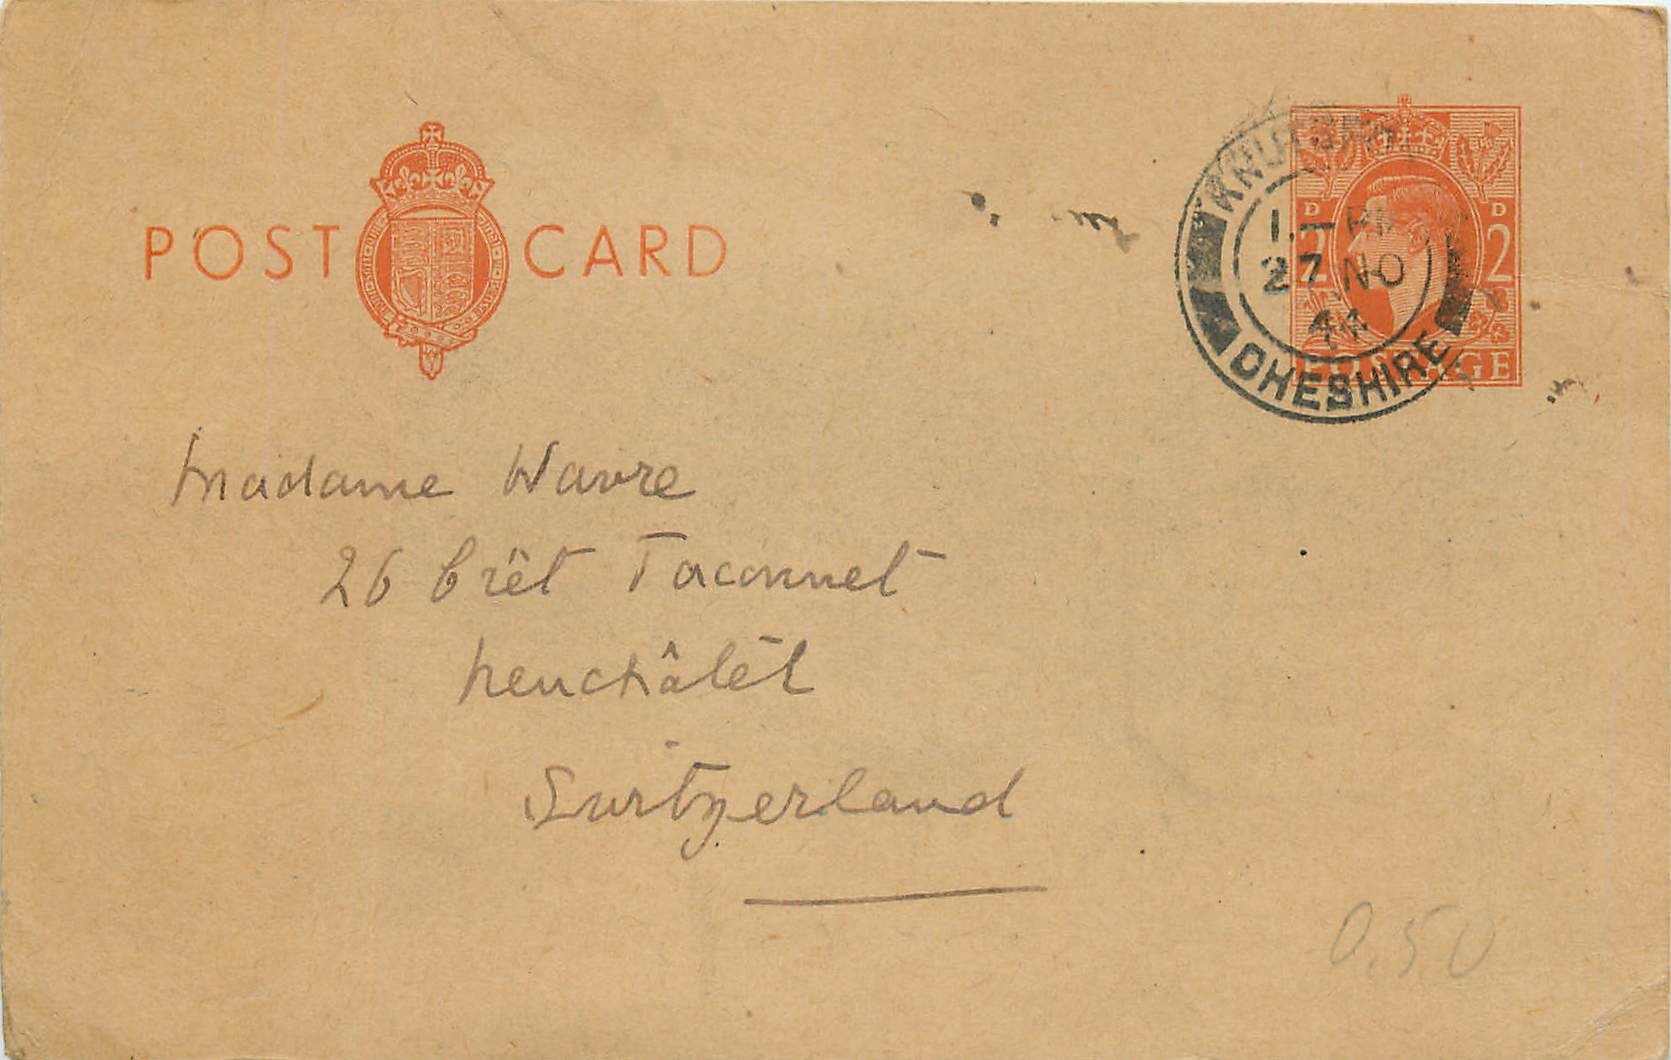 POST CARD
KNUTSFORD
1.— PM
27 NO
44
CHESHIRE
D D
2 2
POSTAGE
Madame Wavre
26 Crêt Taconnet
Neuchâtêl
Switzerland
0.50